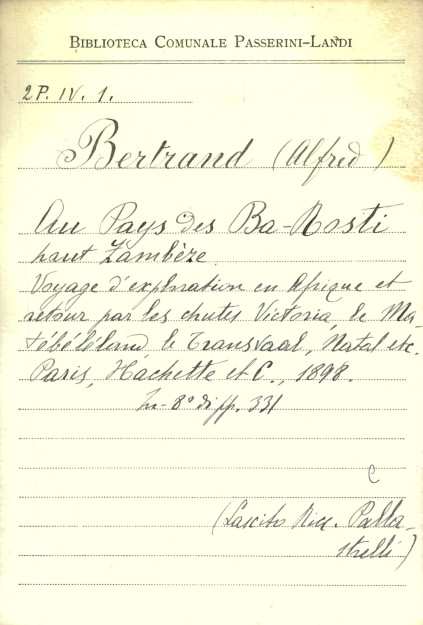 BIBLIOTECA COMUNALE PASSERINI-LANDI
2P. IV. 1.
Bertrand (Alfred)
Au Pays des Ba-Rosti
haut Zambèze.
Voyage d'exploration en Afrique et
retour par les chutes Victoria, le Ma-
tébéléland, le Transvaal, Natal etc.
Paris, Hachette et C., 1898.
In-8° di pp. 331
C
(Lascito Ricc. Palla-
strelli)